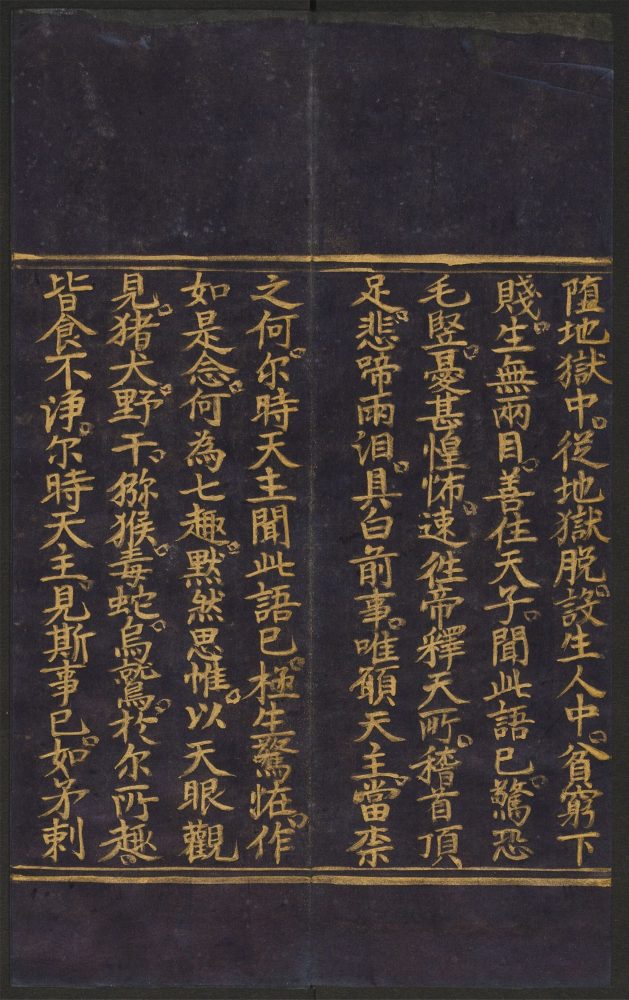 堕地獄中。從地獄脫。設生人中。貧窮下
賤。生無兩目。善住天子。聞此語已。驚恐
毛竪。憂甚惶怖。速往帝釋天所。稽首頂
足。悲啼雨泪。具白前事。唯願天主。當柰
之何。尔時天主聞此語已。極生驚恠。作
如是念。何為七趣。默然思惟。以天眼觀
見。猪犬野干。獼猴毒蛇。烏鷲。於尔所趣。
皆食不淨。尔時天主。見斯事已。如矛刺